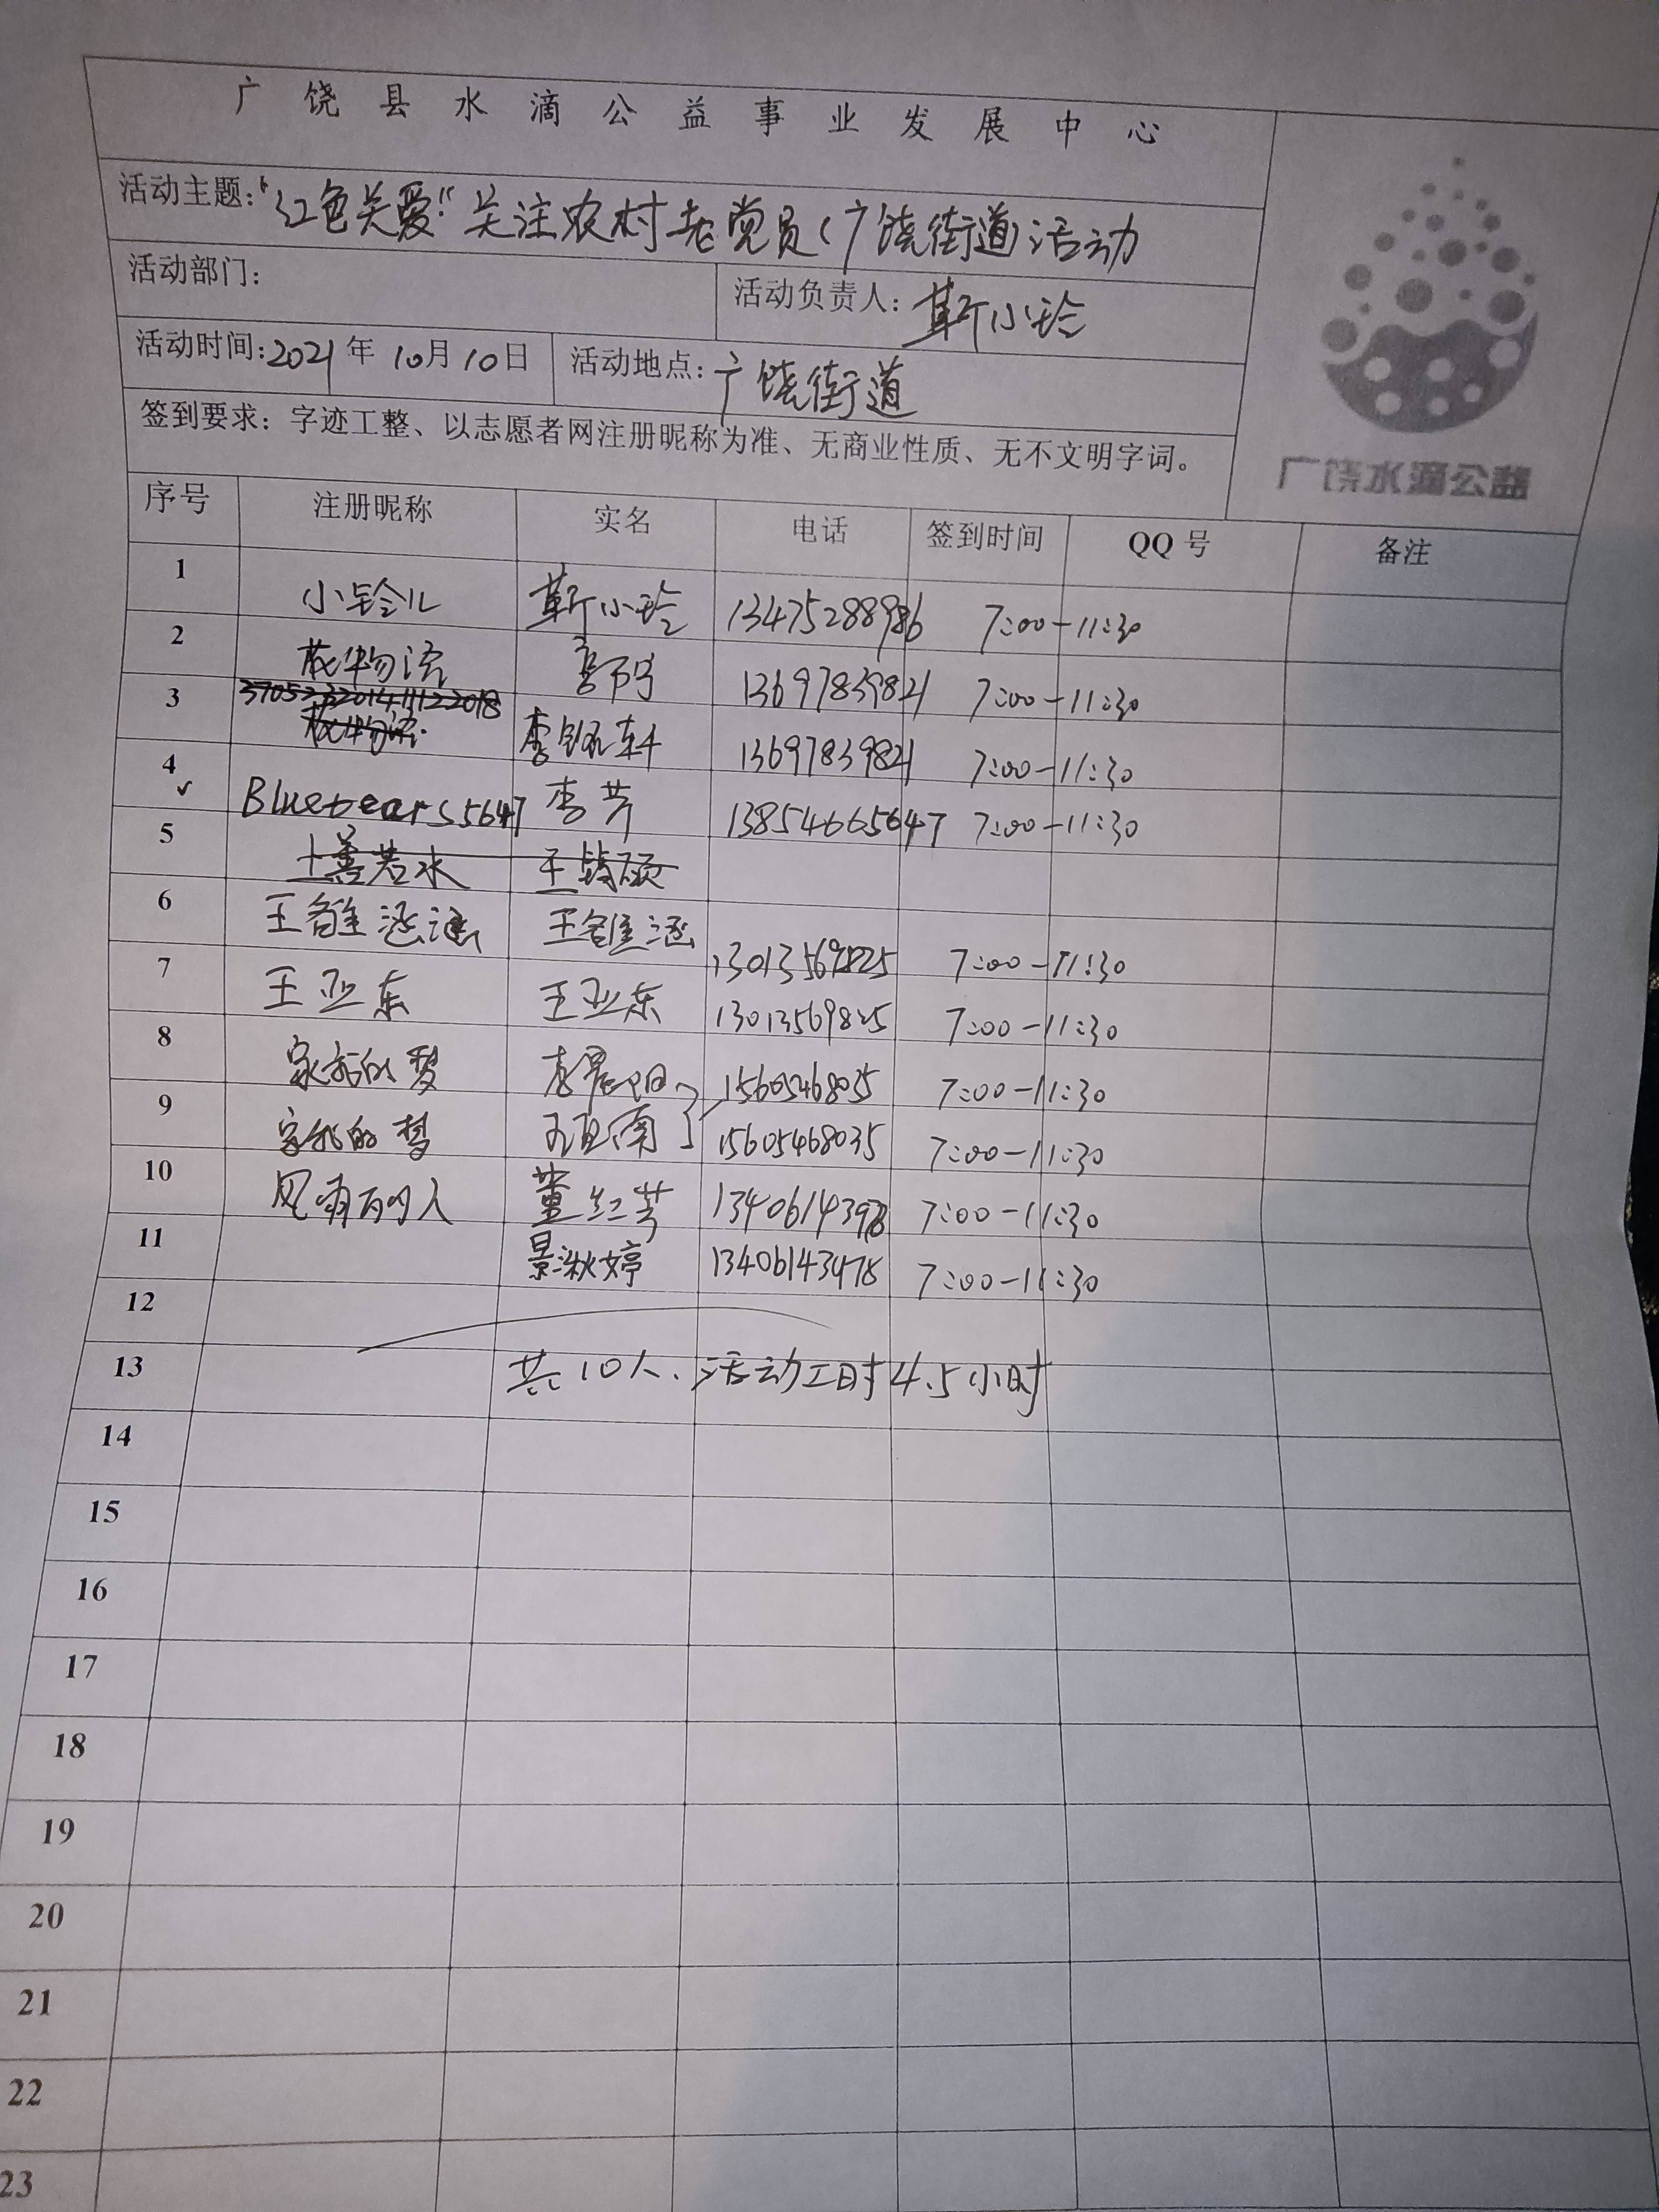 广饶县水滴公益事业发展中心
活动主题："红色关爱"关注农村老党员(广饶街道)活动
活动部门：
活动负责人：靳小玲
活动时间：2021年10月10日 活动地点：广饶街道
签到要求：字迹工整、以志愿者网注册昵称为准、无商业性质、无不文明字词。
广饶水滴公益
序号 注册昵称 实名 电话 签到时间 QQ号 备注
1 小铃儿 靳小玲 13475288986 7:00-11:30
2 13697839821 7:00-11:30
3 李 轩 13697839821 7:00-11:30
4 Bluebears5647 李芳 13854665647 7:00-11:30
5 上善若水 王 硕
6 王 涵 王 涵 13013569825 7:00-11:30
7 王亚东 王亚东 13013569825 7:00-11:30
8 的梦 李晨阳 15605468035 7:00-11:30
9 的梦 南 15605468035 7:00-11:30
10 董红芳 7:00-11:30
11 景淑婷 13406143978 7:00-11:30
12
13 共10人、活动工时4.5小时
14
15
16
17
18
19
20
21
22
23